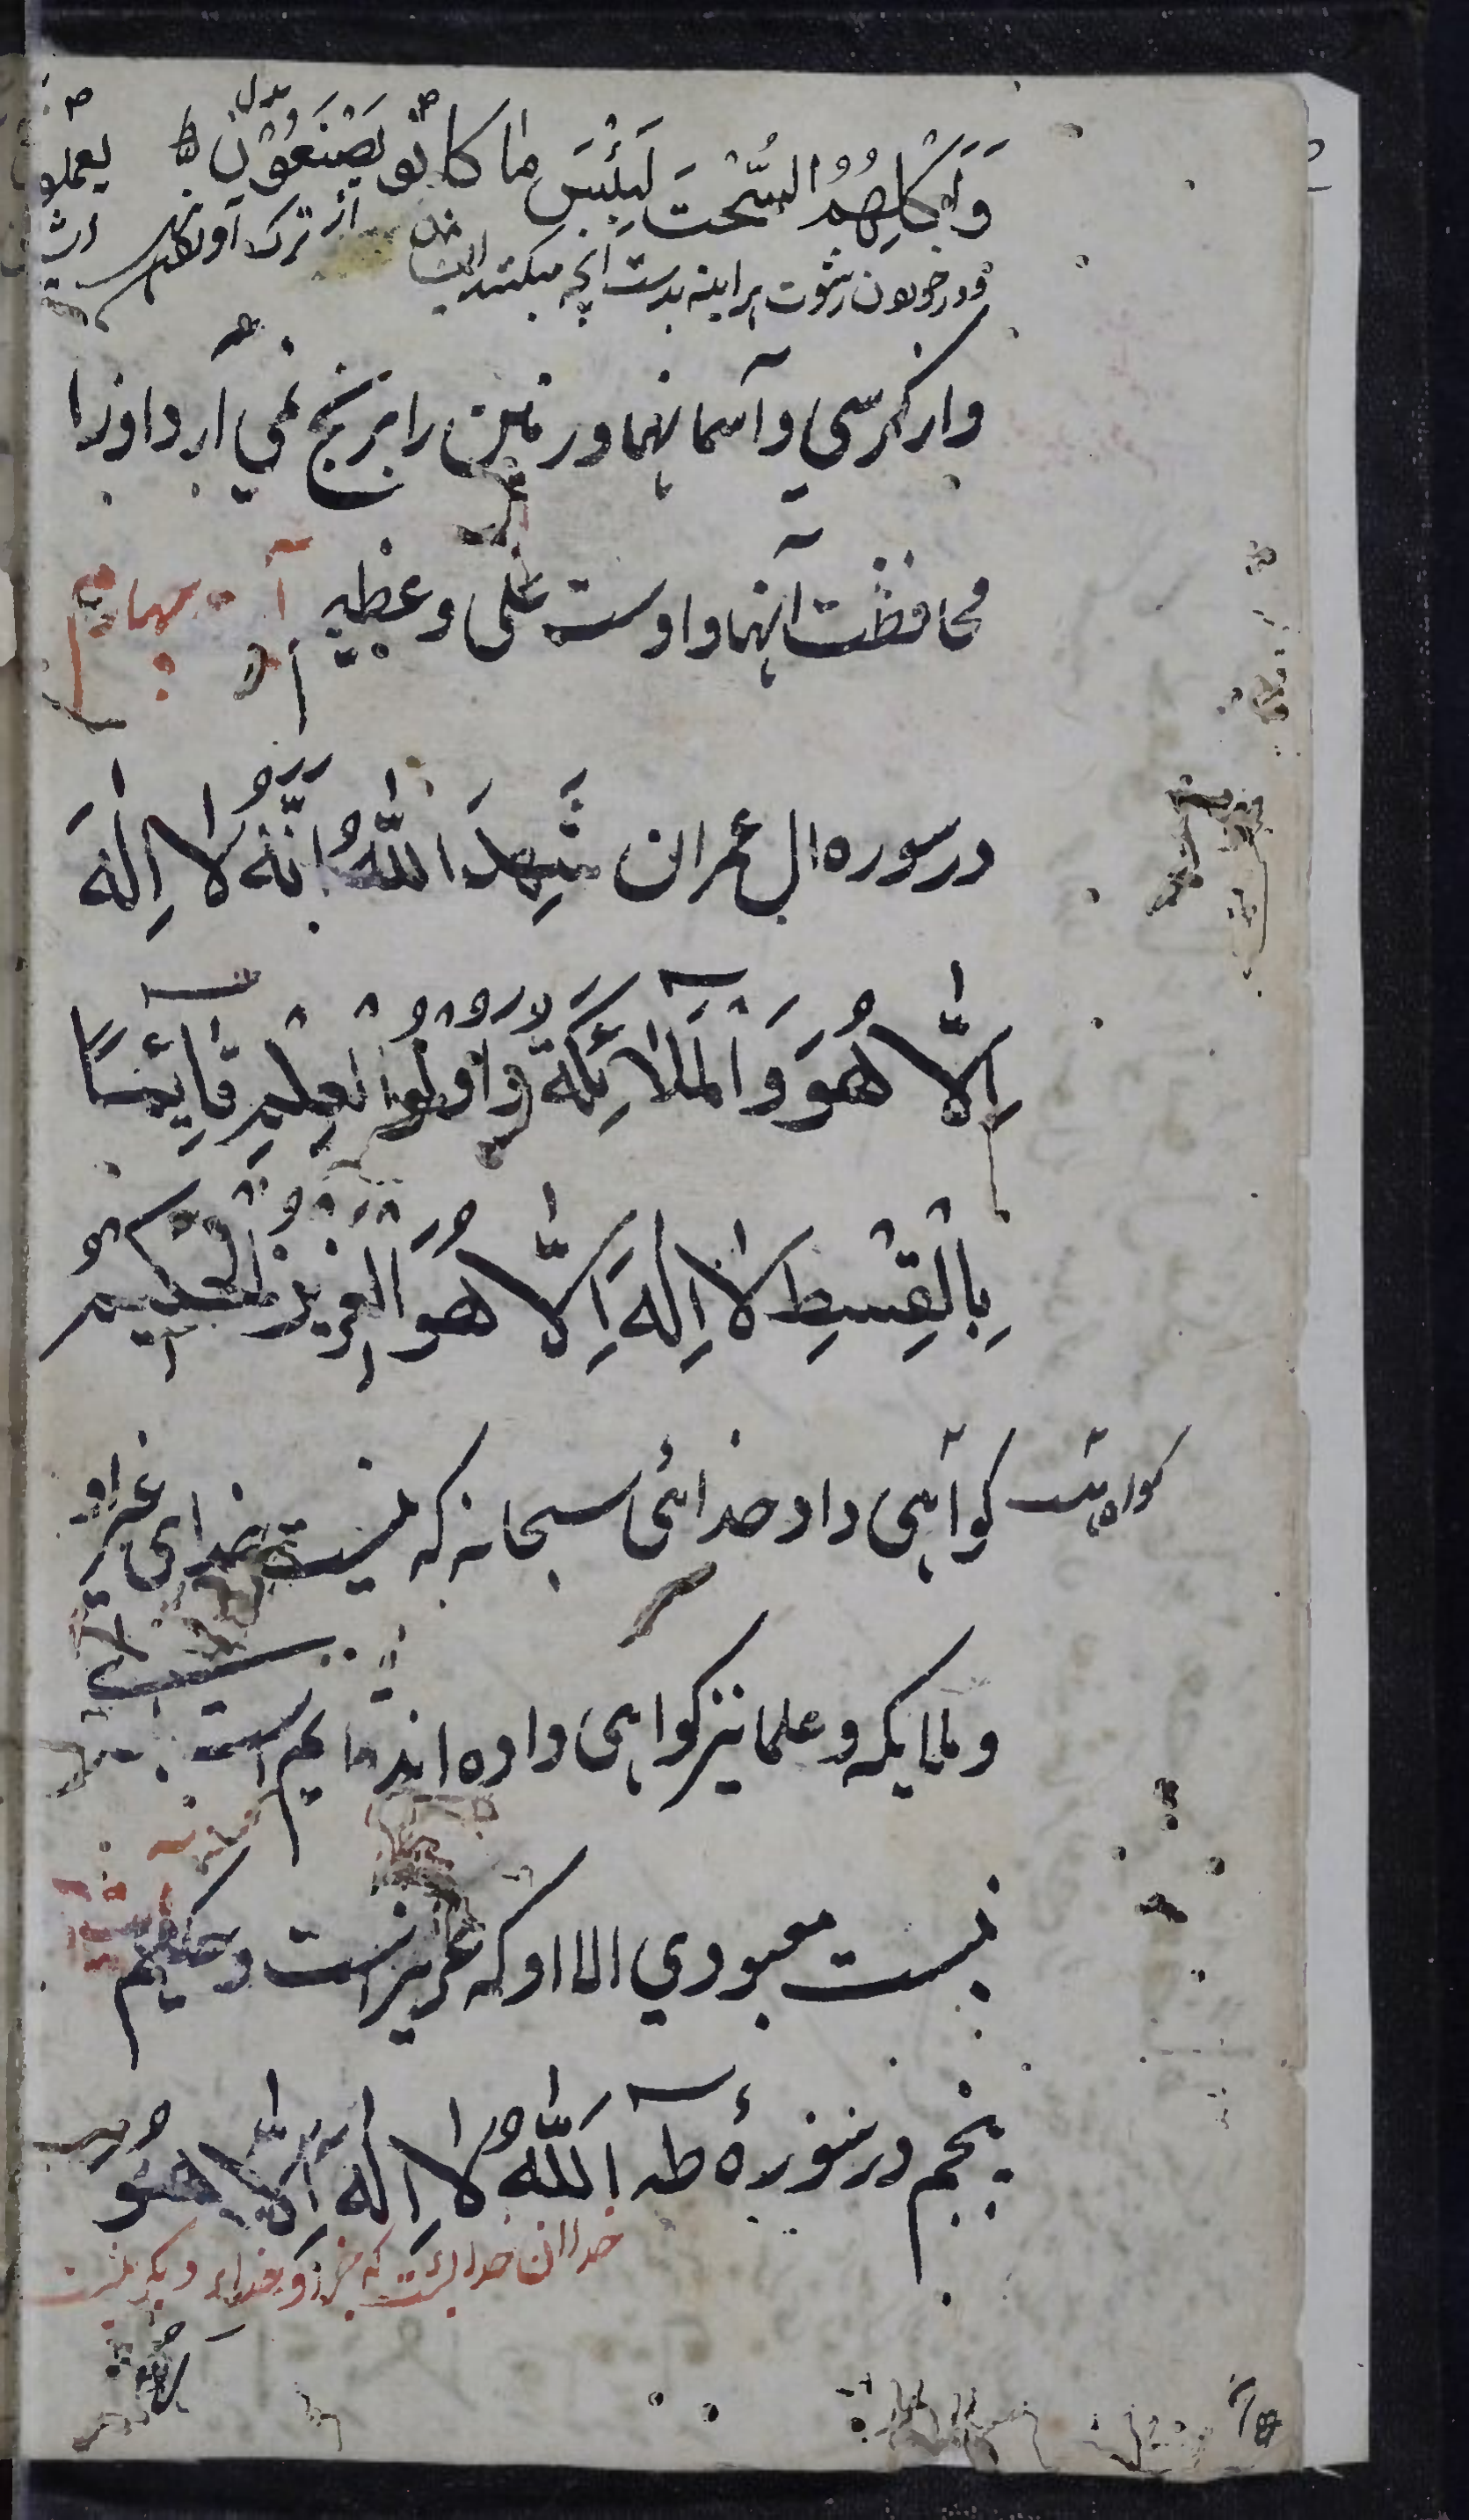 وَاَكْلِهِمُ السُّحْتَ لَبِئْسَ مَا كَانُوْ يَصْنَعُوْنَ
ودر خوردن رشوت هر اینه بدست آنچه میکنند ایشان از ترک
واز کرسی و آسمانها و زمین را برنج نمی آرد اورا
محافظت آنها و اوست علی و عظیم
در سوره ال عمران شَهِدَ اللّٰهُ اَنَّهُ لَا اِلٰهَ
اِلَّا هُوَ وَالْمَلَآئِكَةُ وَاُولُوا الْعِلْمِ قَآئِمًا
بِالْقِسْطِ لَا اِلٰهَ اِلَّا هُوَ الْعَزِيْزُ الْحَكِيْمُ
کواهی داد خدائی سبحانه که نیست خدای غیر او
و ملایکه و علما نیز کواهی داده اند
نیست معبودي الا او که عزیز است و حکیم
پنجم در سورهٔ طه اَللّٰهُ لَا اِلٰهَ اِلَّا هُوَ
خدا ان خدائست که جز او خداء دیکر نیست